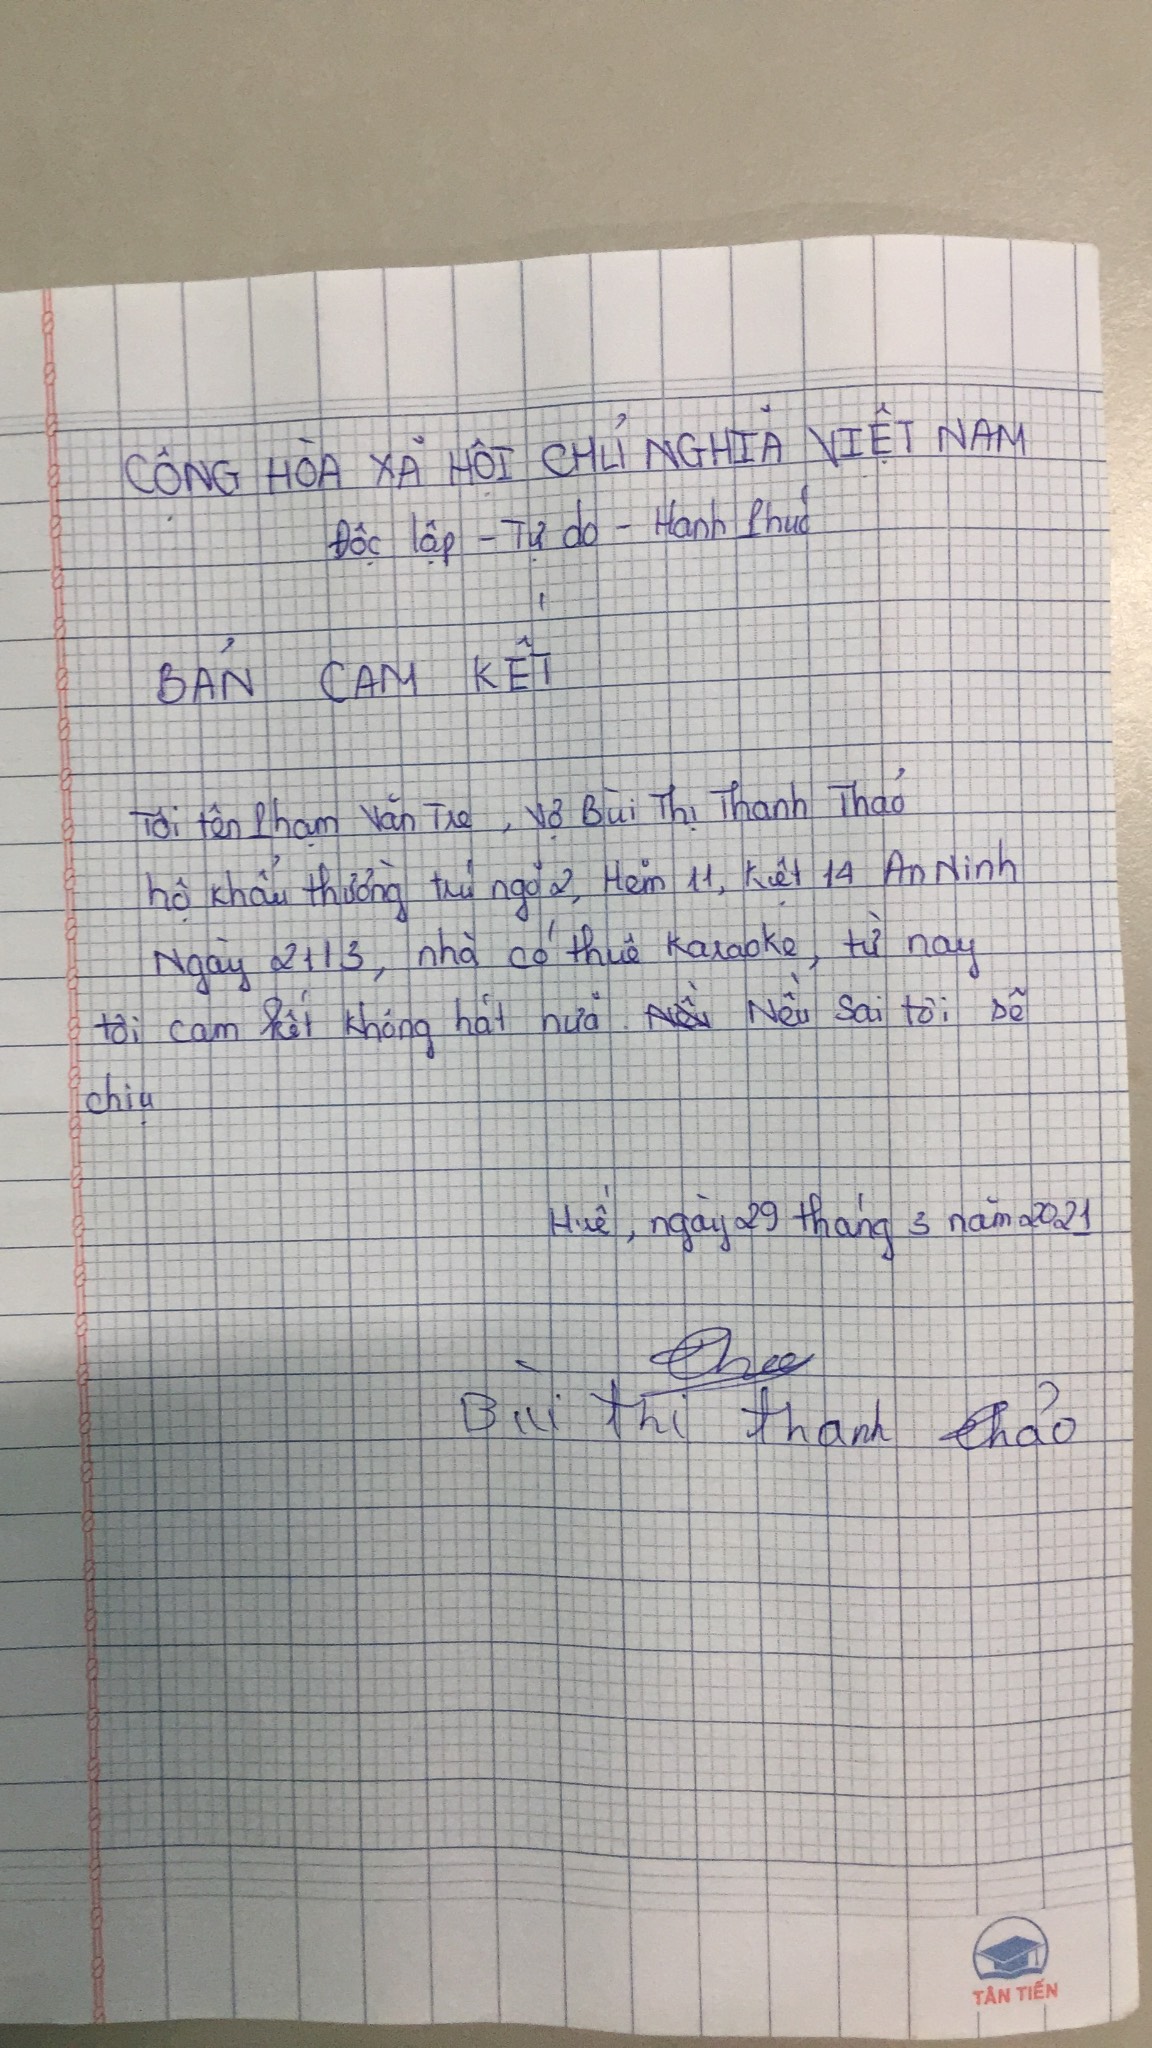 CỘNG HÒA XÃ HỘI CHỦ NGHĨA VIỆT NAM
Độc lập - Tự do - Hạnh Phúc
BẢN CAM KẾT
Tôi tên Phạm Văn Tre, Vợ Bùi Thị Thanh Thảo
hộ khẩu thường trú ngõ 2, Hẻm 11, Kiệt 14 An Ninh
Ngày 21/3, nhà có thuê Karaoke, từ nay
tôi cam kết không hát nữa. Nếu Sai tôi sẽ
chịu
Huế, ngày 29 tháng 3 năm 2021
Bùi thị thanh thảo
TÂN TIẾN